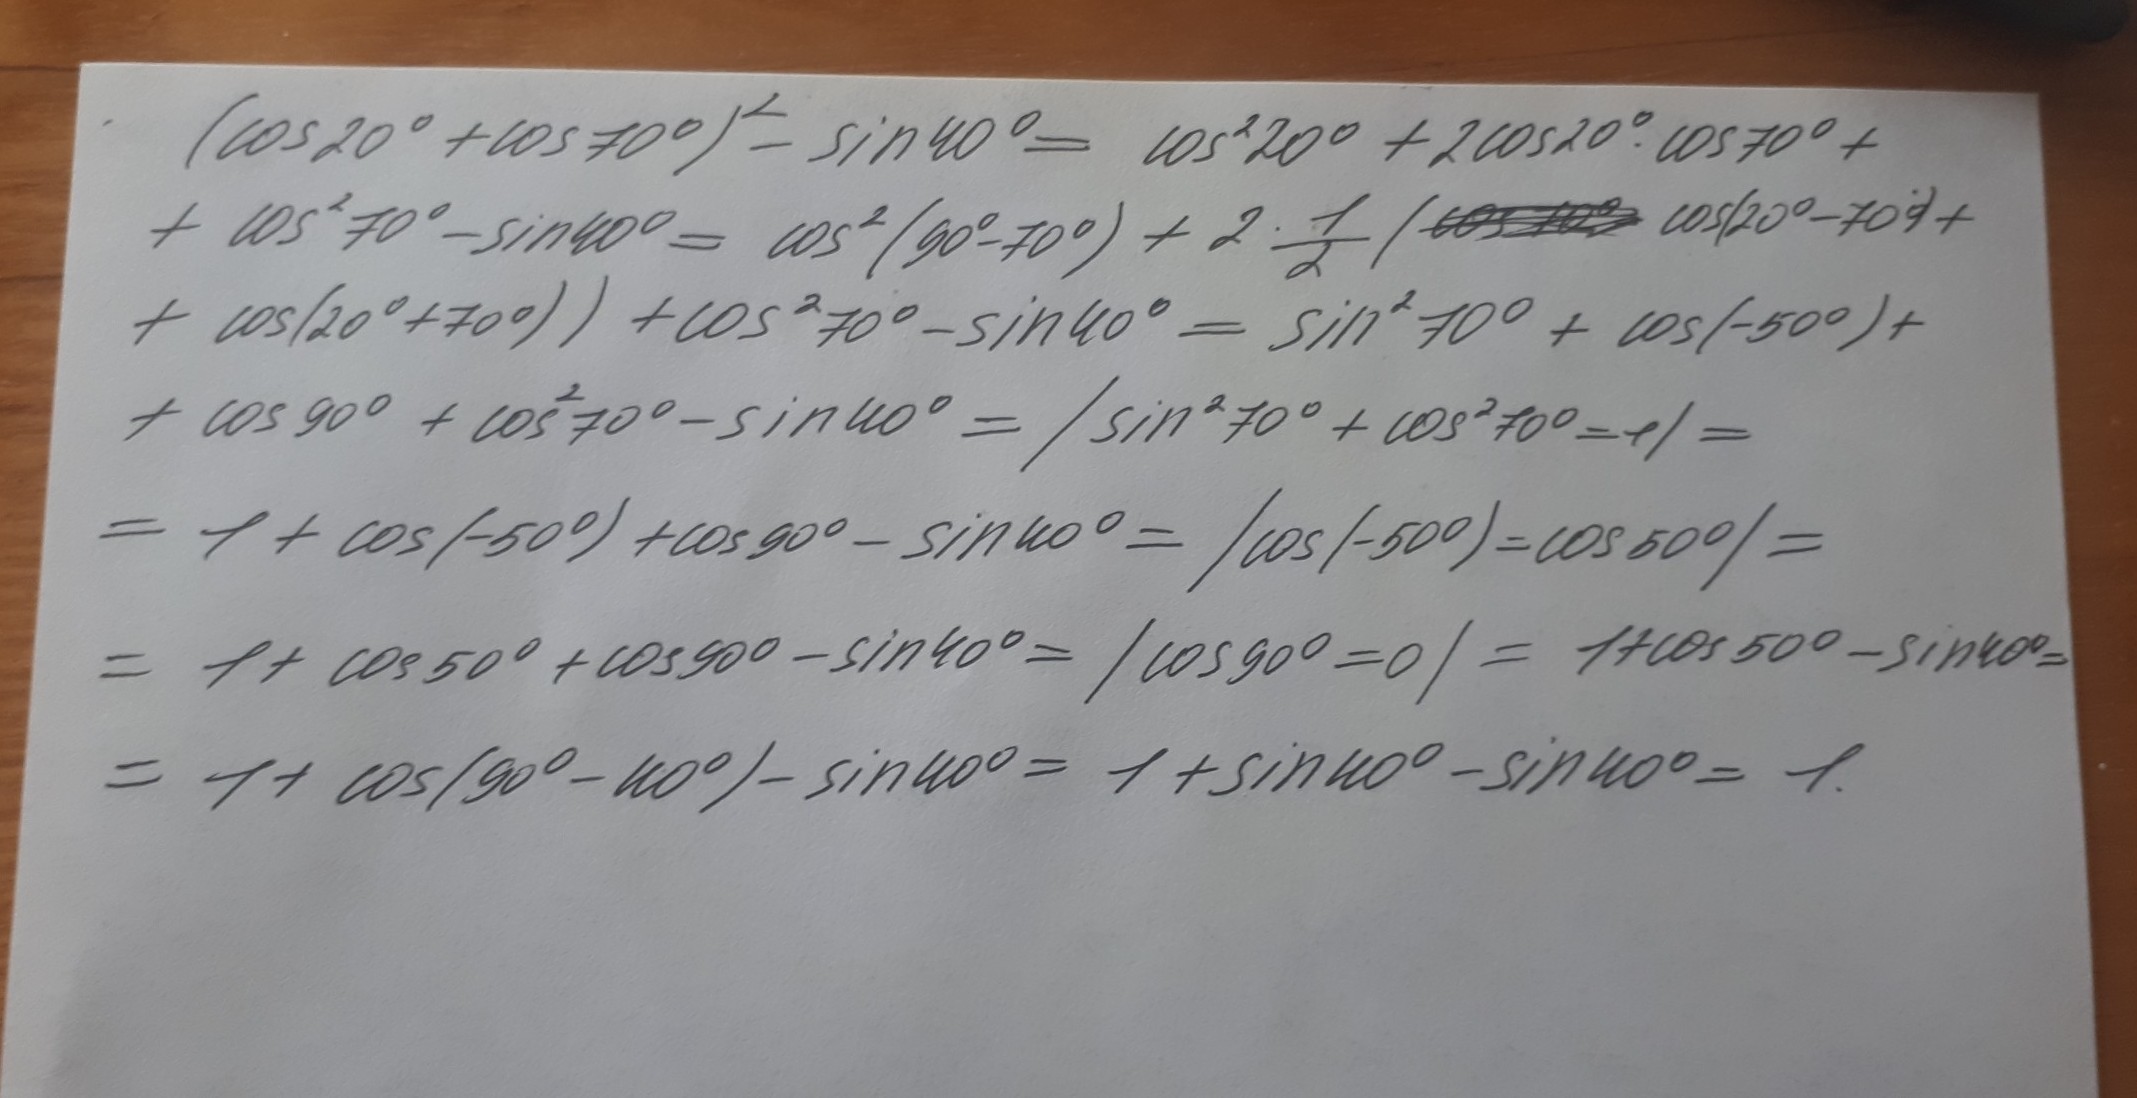 (cos20° + cos70°)² - sin40° = cos²20° + 2cos20° · cos70° +
+ cos²70° - sin40° = cos²(90° - 70°) + 2 · 1/2 (cos(20° - 70°) +
+ cos(20° + 70°)) + cos²70° - sin40° = sin²70° + cos(-50°) +
+ cos90° + cos²70° - sin40° = /sin²70° + cos²70° = 1/ =
= 1 + cos(-50°) + cos90° - sin40° = /cos(-50°) = cos50°/ =
= 1 + cos50° + cos90° - sin40° = /cos90° = 0/ = 1 + cos50° - sin40° =
= 1 + cos(90° - 40°) - sin40° = 1 + sin40° - sin40° = 1.